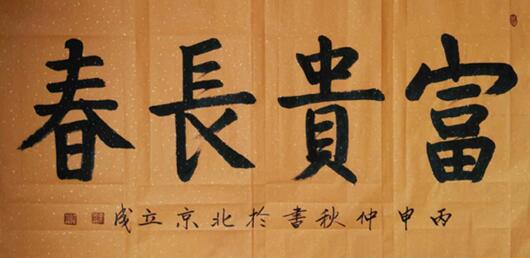 富貴長春
丙申仲秋書於北京立成